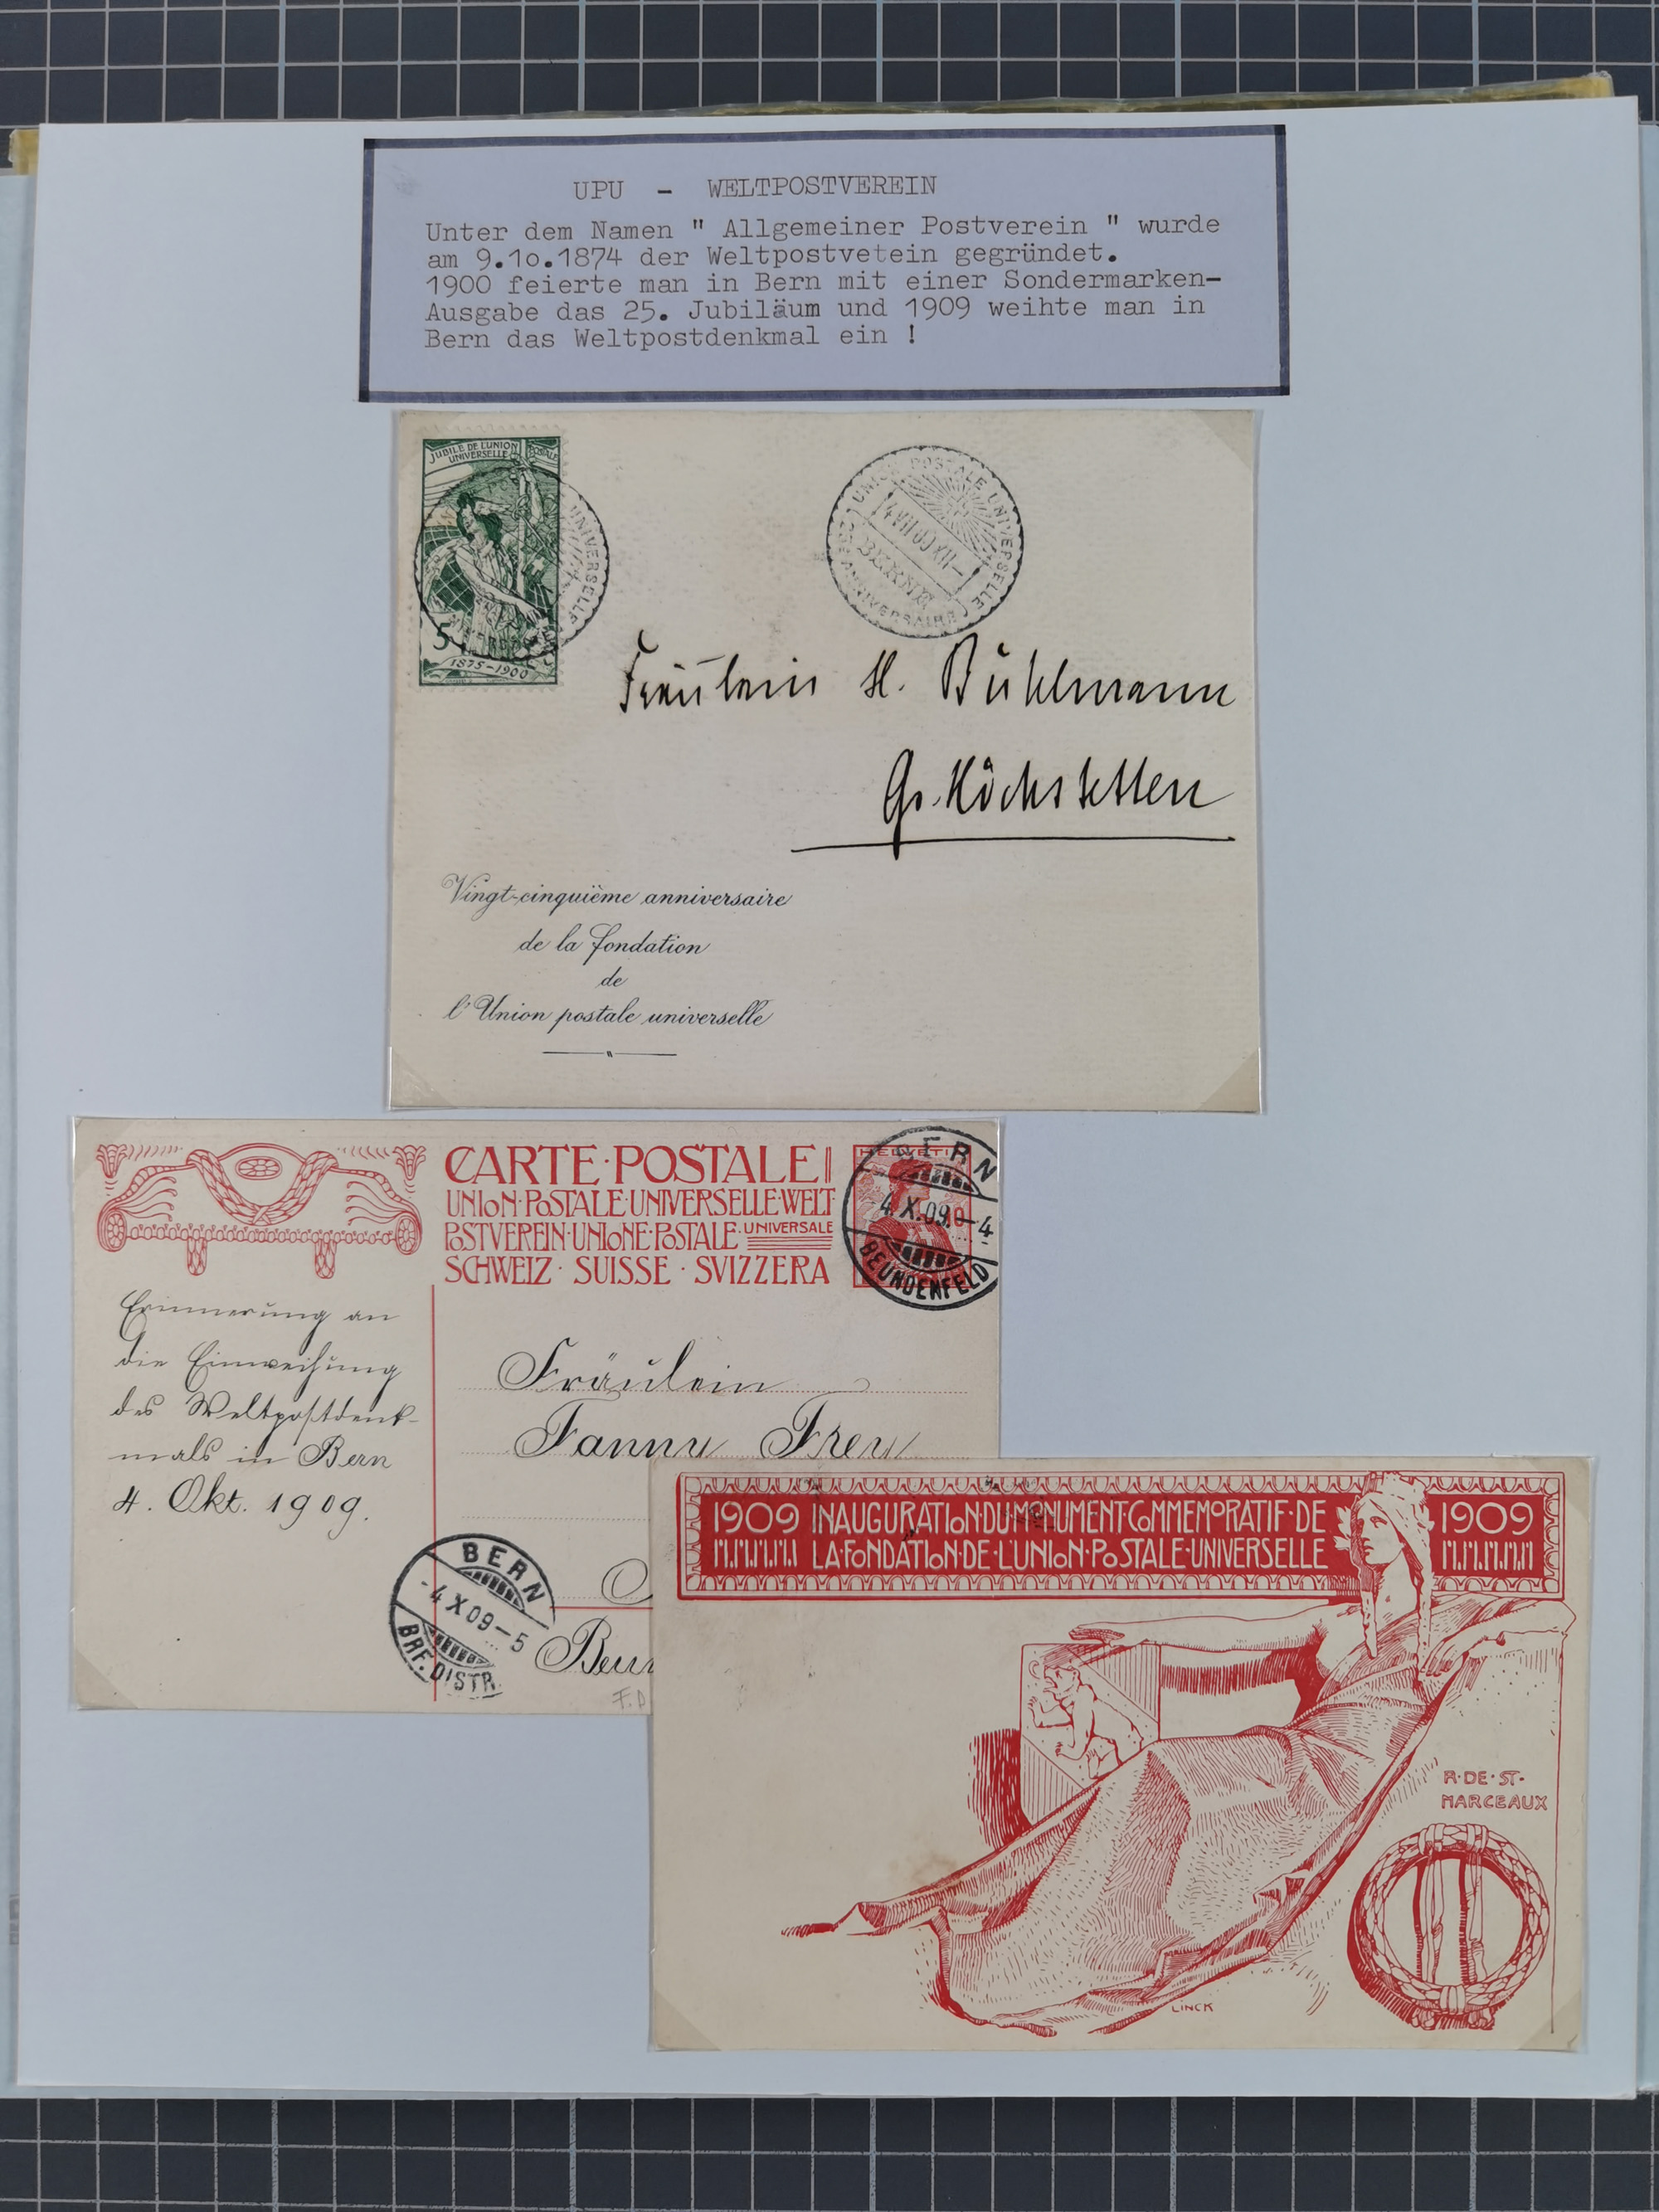 UPU - WELTPOSTVEREIN
Unter dem Namen " Allgemeiner Postverein " wurde
am 9.1o.1874 der Weltpostvetein gegründet.
1900 feierte man in Bern mit einer Sondermarken-
Ausgabe das 25. Jubiläum und 1909 weihte man in
Bern das Weltpostdenkmal ein !
JUBILÉ DE L'UNION POSTALE
UNIVERSELLE
5
1875-1900
UNIVERSELLE
UNION POSTALE UNIVERSELLE
BERNE
ANNIVERSAIRE
Fräulein H. Bühlmann
Gr. Höchstetten
Vingt-cinquième anniversaire
de la fondation
de
l'Union postale universelle
CARTE·POSTALE
UNION·POSTALE·UNIVERSELLE·WELT
POSTVEREIN·UNIONE·POSTALE·UNIVERSALE
SCHWEIZ · SUISSE · SVIZZERA
HELVETIA
BERN
4.X.09.-4
BEUNDENFELD
Erinnerung an
die Einweihung
des Weltpostdenk-
mals in Bern
4. Okt. 1909.
Fräulein
Fanny Frey
BERN
-4 X 09-5
BRF.DISTR.
F.D
1909 INAUGURATION·DU·MONUMENT·COMMEMORATIF·DE 1909
LA·FONDATION·DE·L'UNION·POSTALE·UNIVERSELLE
R·DE·ST·
MARCEAUX
LINCK